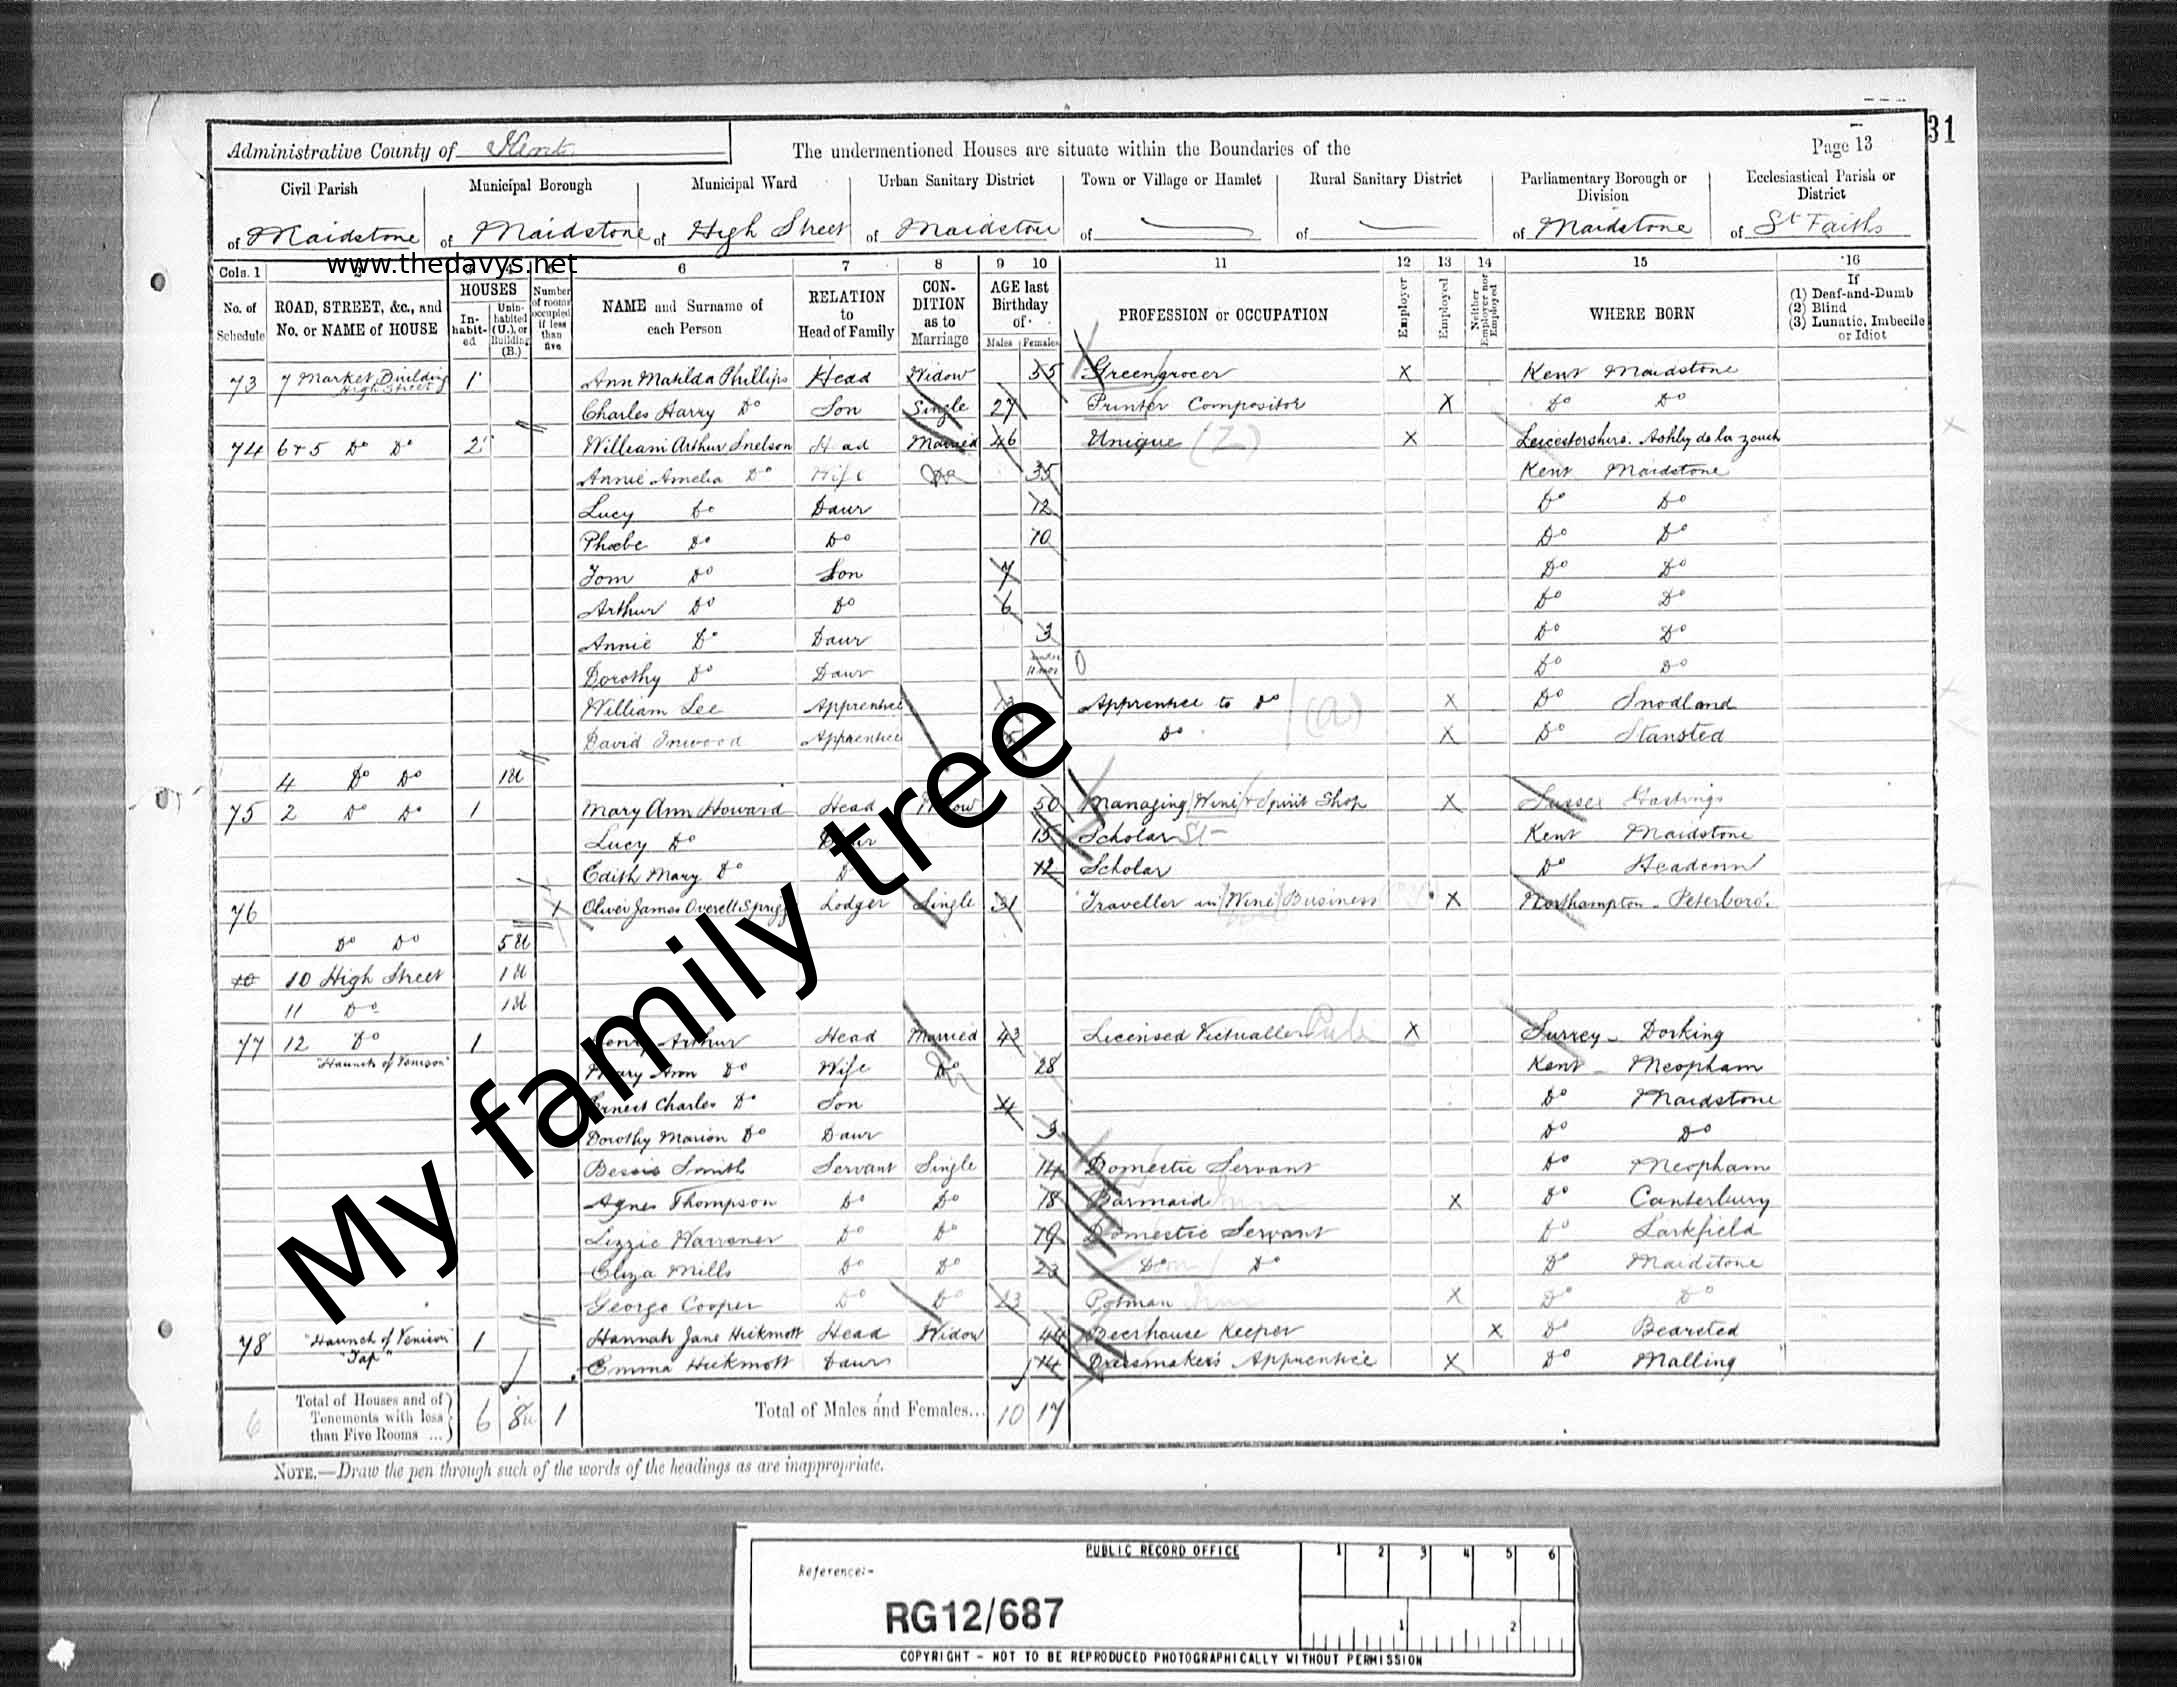 31
Administrative County of Kent
The undermentioned Houses are situate within the Boundaries of the
Page 13
Civil Parish
Municipal Borough
Municipal Ward
Urban Sanitary District
Town or Village or Hamlet
Rural Sanitary District
Parliamentary Borough or Division
Ecclesiastical Parish or District
of Maidstone
of Maidstone
of High Street
of Maidstone
of
of
of Maidstone
of St Faiths
www.thedavys.net
Cols. 1 6 7 8 9 10 11 12 13 14 15 16
No. of Schedule
ROAD, STREET, &c., and No. or NAME of HOUSE
HOUSES
In-habit-ed
Unin-habited (U.), or Building (B.)
Number of rooms occupied if less than five
NAME and Surname of each Person
RELATION to Head of Family
CON-DITION as to Marriage
AGE last Birthday of
Males Females
PROFESSION or OCCUPATION
Employer
Employed
Neither Employer nor Employed
WHERE BORN
If (1) Deaf-and-Dumb (2) Blind (3) Lunatic, Imbecile or Idiot
73 7 Market Building High Street 1 Ann Matilda Phillips Head Widow 55 Greengrocer X Kent Maidstone
Charles Harry Do Son Single 27 Printer Compositor X Do Do
74 6+5 Do Do 2 William Arthur Snelson Head Married 46 Unique (Z) X Leicestershire. Ashby de la zouch
Annie Amelia Do Wife Do 35 Kent Maidstone
Lucy Do Daur 12 Do Do
Phoebe Do Do 10 Do Do
Tom Do Son 7 Do Do
Arthur Do Do 6 Do Do
Annie Do Daur 3 Do Do
Dorothy Do Daur Do Do
William Lee Apprentice Apprentice to Do (a) X Do Snodland
David Inwood Apprentice Do X Do Stansted
4 Do Do 1U
75 2 Do Do 1 Mary Ann Howard Head 50 Managing Wine & Spirit Shop X Sussex Hastings
Lucy Do 15 Scholar St Kent Maidstone
Edith Mary Do 12 Scholar Do Headcorn
76 1 Oliver James Overett Spriggs Lodger Single 31 Traveller in Wine Business X Northampton - Peterboro'.
Do Do 5U
10 High Street 1U
11 Do 1U
77 12 Do 1 Henry Arthur Head Married 43 Licensed Victualler Pub X Surrey - Dorking
"Haunch of Venison" Mary Ann Do Wife Do 28 Kent - Meopham
Ernest Charles Do Son 4 Do Maidstone
Dorothy Marion Do Daur 3 Do Do
Bessie Smith Servant Single 14 Domestic Servant Do Meopham
Agnes Thompson Do Do 18 Barmaid X Do Canterbury
Lizzie Warrener Do Do 19 Domestic Servant Do Larkfield
Eliza Mills Do Do 23 Do Do Do Maidstone
George Cooper Do Do 23 Potman X Do Do
78 "Haunch of Venison" "Tap" 1 Hannah Jane Hickmott Head Widow 44 Beerhouse Keeper X Do Bearsted
Emma Hickmott Daur 14 Dressmaker's Apprentice X Do Malling
My family tree
6 Total of Houses and of Tenements with less than Five Rooms ... 6 8u 1 Total of Males and Females... 10 17
NOTE.—Draw the pen through such of the words of the headings as are inappropriate.
PUBLIC RECORD OFFICE
1 2 3 4 5 6
Reference:-
RG12/687
1 2
COPYRIGHT - NOT TO BE REPRODUCED PHOTOGRAPHICALLY WITHOUT PERMISSION